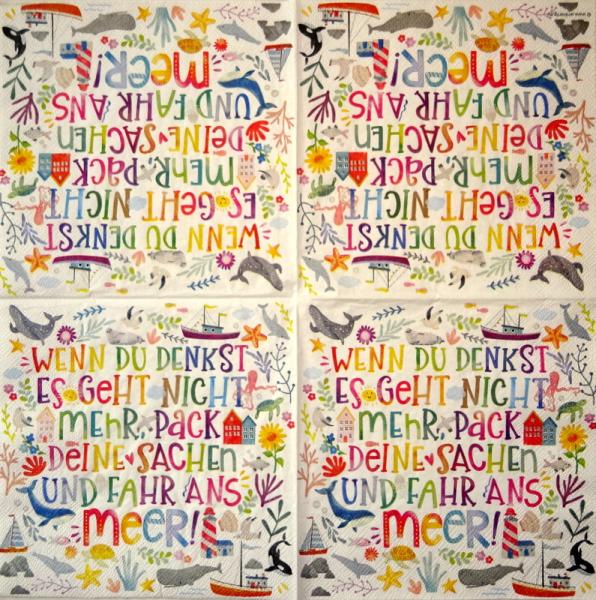 WENN DU DENKST
ES GEHT NICHT
MEHR, PACK
DEINE SACHEN
UND FAHR ANS
MEER!
WENN DU DENKST
ES GEHT NICHT
MEHR, PACK
DEINE SACHEN
UND FAHR ANS
MEER!
WENN DU DENKST
ES GEHT NICHT
MEHR, PACK
DEINE SACHEN
UND FAHR ANS
MEER!
WENN DU DENKST
ES GEHT NICHT
MEHR, PACK
DEINE SACHEN
UND FAHR ANS
MEER!